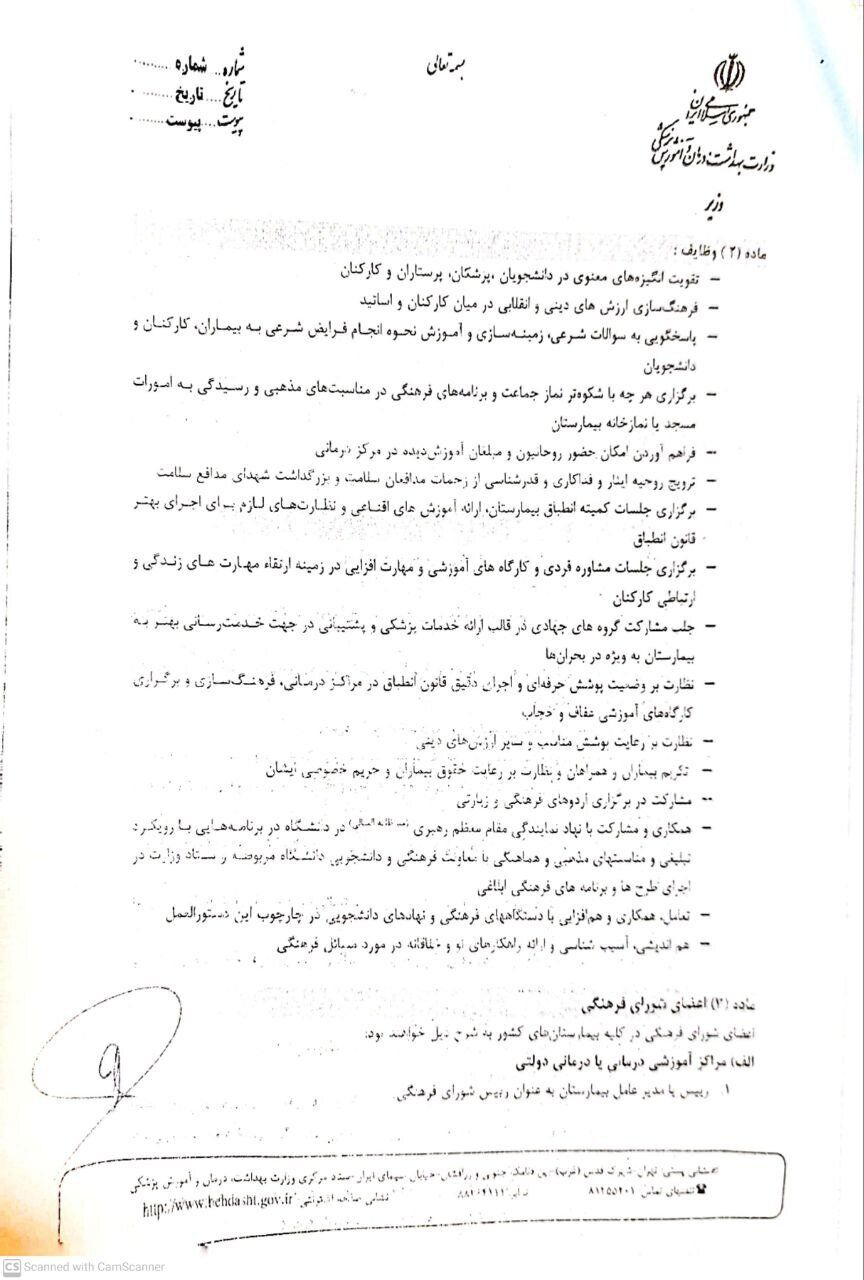 بسمه تعالی
جمهوری اسلامی ایران
وزارت بهداشت، درمان و آموزش پزشکی
وزیر
شماره .. شماره ........
تاریخ .... تاریخ ........
پیوست .... پیوست ........
ماده (۲) وظایف :
– تقویت انگیزه‌های معنوی در دانشجویان ،پزشکان، پرستاران و کارکنان
– فرهنگ‌سازی ارزش های دینی و انقلابی در میان کارکنان و اساتید
– پاسخگویی به سوالات شرعی، زمینه‌سازی و آموزش نحوه انجام فرایض شرعی به بیماران، کارکنان و
دانشجویان
– برگزاری هر چه با شکوه‌تر نماز جماعت و برنامه‌های فرهنگی در مناسبت‌های مذهبی و رسیدگی به امورات
مسجد یا نمازخانه بیمارستان
– فراهم آوردن امکان حضور روحانیون و مبلغان آموزش‌دیده در مرکز درمانی
– ترویج روحیه ایثار و فداکاری و قدرشناسی از زحمات مدافعان سلامت و بزرگداشت شهدای مدافع سلامت
– برگزاری جلسات کمیته انطباق بیمارستان، ارائه آموزش های اقناعی و نظارت‌های لازم برای اجرای بهتر
قانون انطباق
– برگزاری جلسات مشاوره فردی و کارگاه های آموزشی و مهارت افزایی در زمینه ارتقاء مهارت های زندگی و
ارتباطی کارکنان
– جلب مشارکت گروه های جهادی در قالب ارائه خدمات پزشکی و پشتیبانی در جهت خدمت‌رسانی بهتر به
بیمارستان به ویژه در بحران‌ها
– نظارت بر وضعیت پوشش حرفه‌ای و اجرای دقیق قانون انطباق در مراکز درمانی، فرهنگ‌سازی و برگزاری
کارگاه‌های آموزشی عفاف و حجاب
– نظارت بر رعایت پوشش مناسب و سایر ارزش‌های دینی
– تکریم بیماران و همراهان و نظارت بر رعایت حقوق بیماران و حریم خصوصی ایشان
– مشارکت در برگزاری اردوهای فرهنگی و زیارتی
– همکاری و مشارکت با نهاد نمایندگی مقام معظم رهبری (مد ظله العالی) در دانشگاه در برنامه‌هایی با رویکرد
تبلیغی و مناسبتهای مذهبی و هماهنگی با معاونت فرهنگی و دانشجویی دانشگاه مربوطه و ستاد وزارت در
اجرای طرح ها و برنامه های فرهنگی ابلاغی
– تعامل، همکاری و هم‌افزایی با دستگاههای فرهنگی و نهادهای دانشجویی در چارچوب این دستورالعمل
– هم اندیشی، آسیب شناسی و ارائه راهکارهای نو و خلاقانه در مورد مسائل فرهنگی
ماده (۳) اعضای شورای فرهنگی
اعضای شورای فرهنگی در کلیه بیمارستان‌های کشور به شرح ذیل خواهند بود:
الف) مراکز آموزشی درمانی یا درمانی دولتی
۱. رییس یا مدیر عامل بیمارستان به عنوان رییس شورای فرهنگی
نشانی پستی: تهران-شهرک قدس (غرب)- بین فلامک جنوبی و زرافشان-خیابان سیمای ایران-ستاد مرکزی وزارت بهداشت، درمان و آموزش پزشکی
تلفنهای تماس ۸۱۴۵۵۲۰۱ نشانی صفحه الکترونیکی http://www.behdasht.gov.ir
CS Scanned with CamScanner